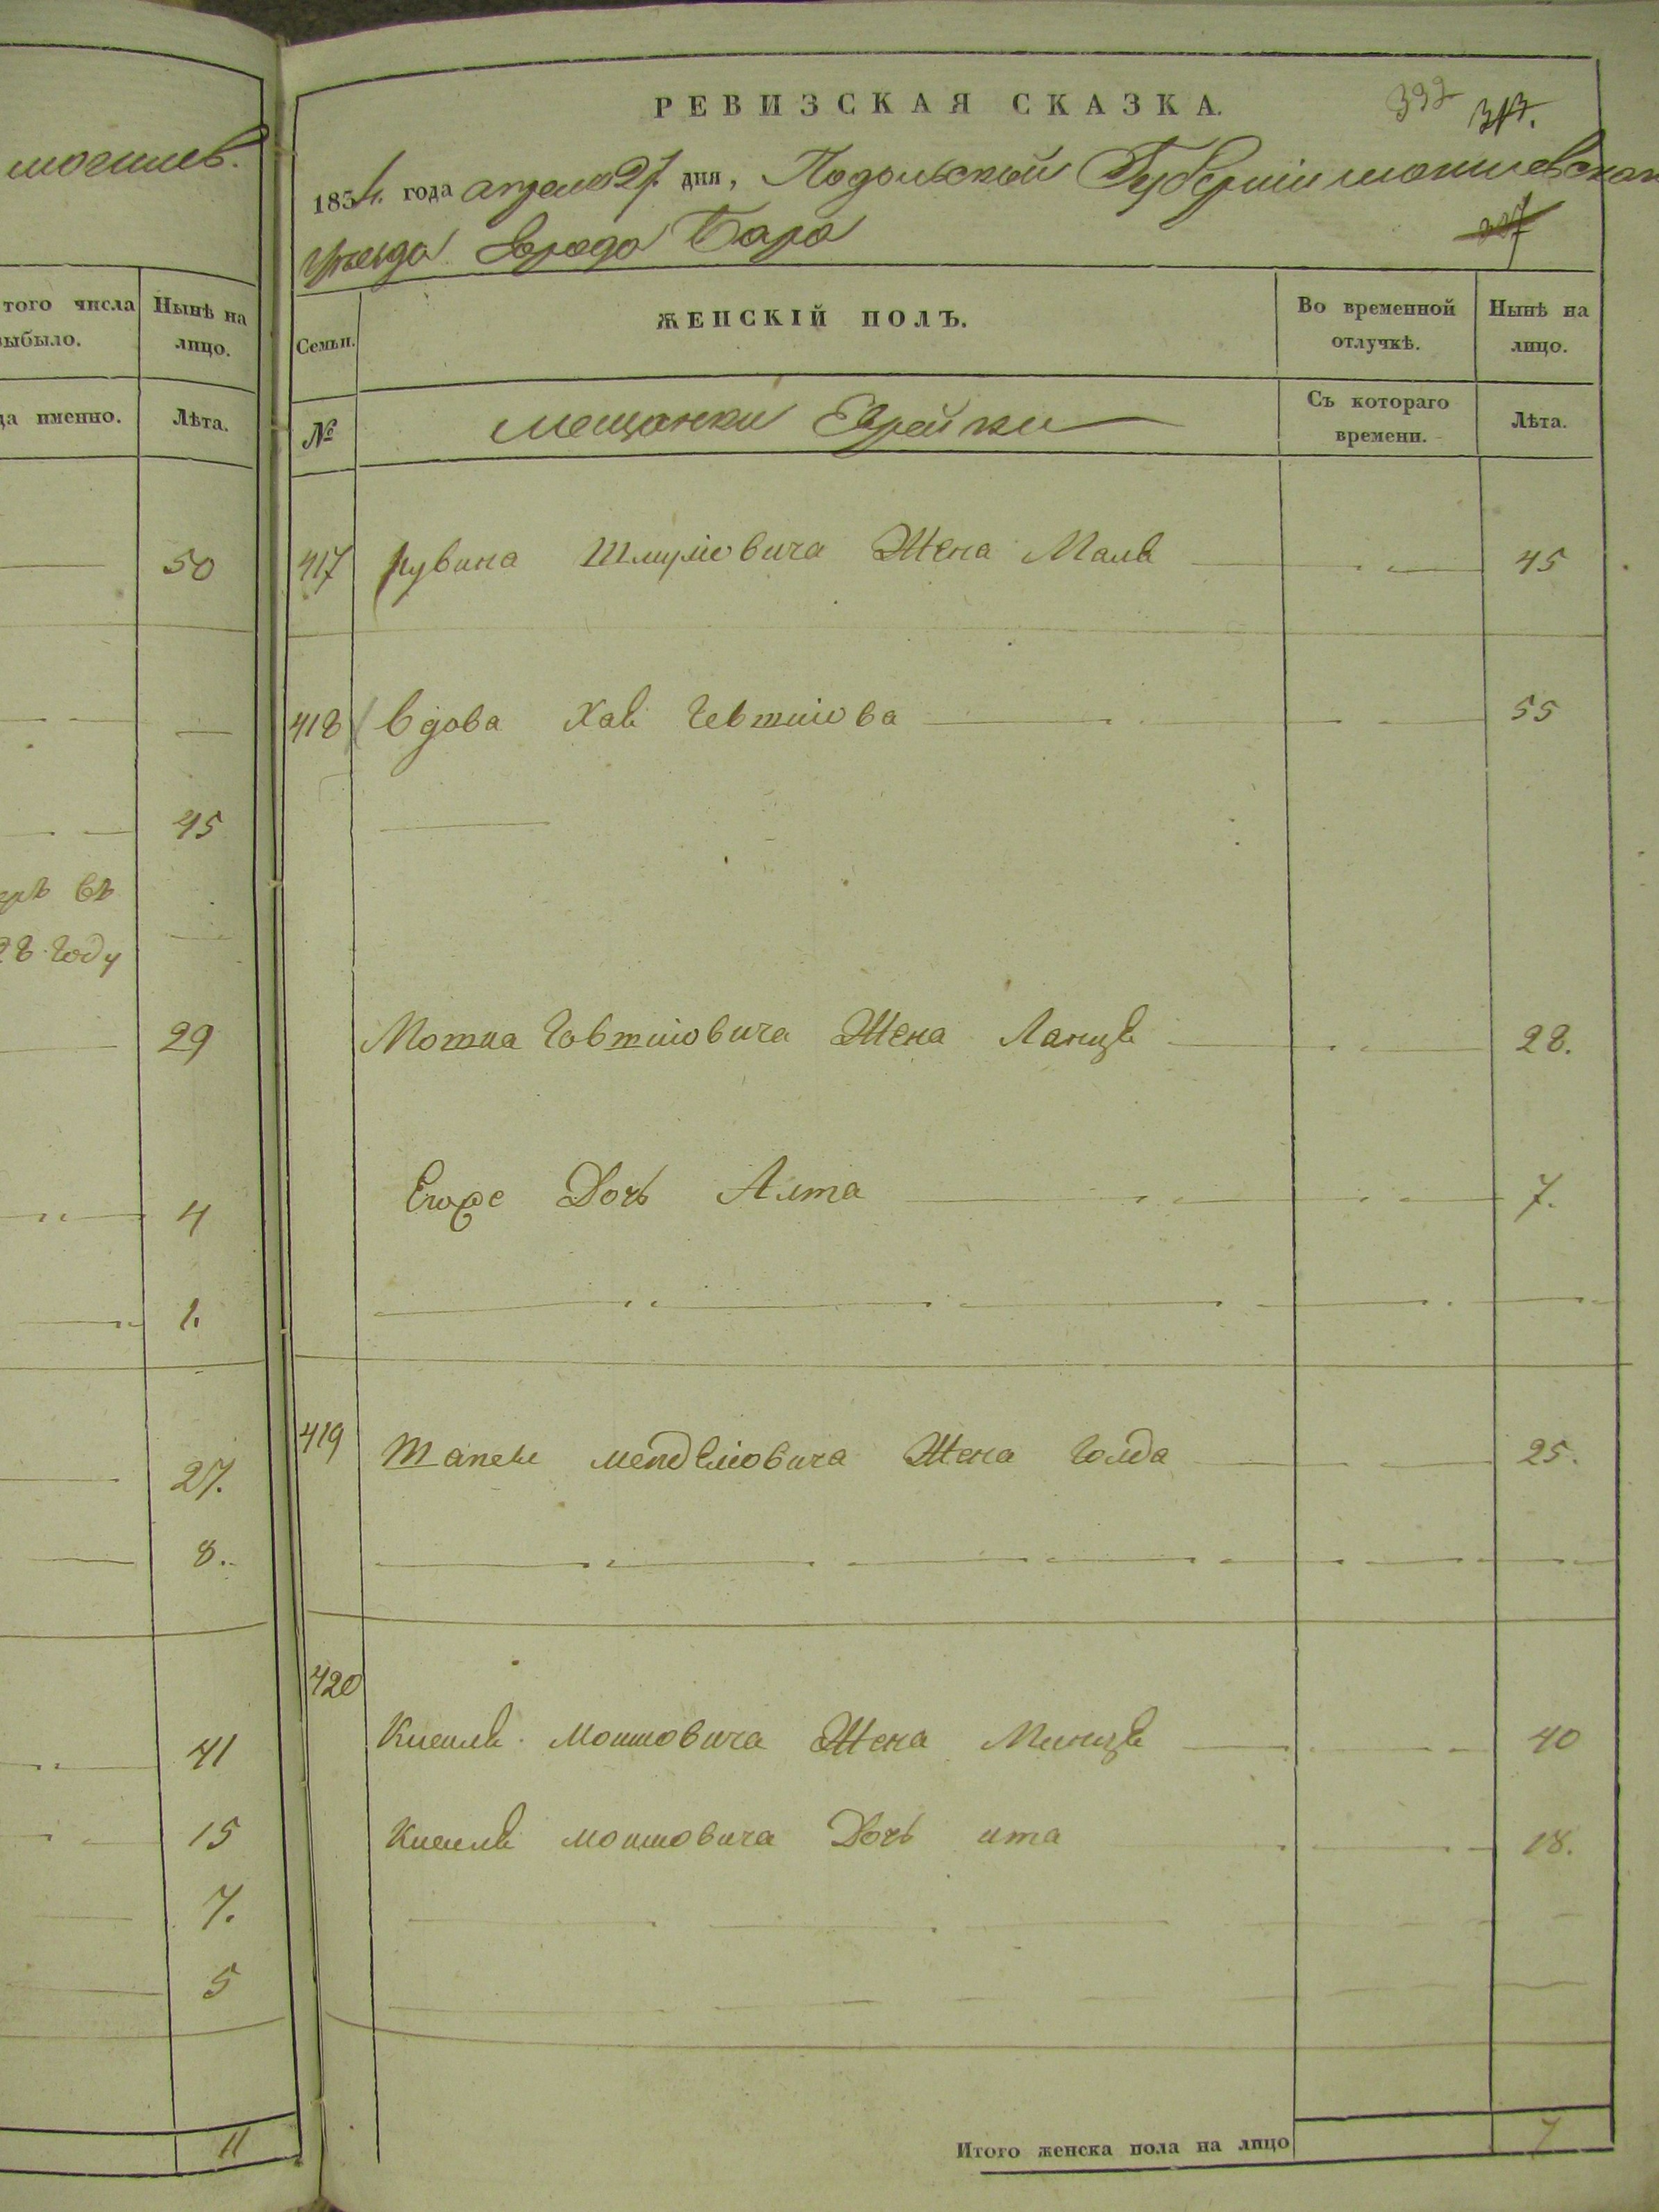 могилев.
того числа
выбыло.
Нынѣ на
лицо.
да именно.
Лѣта.
50
45
въ
28 году
29
4
1.
27.
8.
41
15
7.
5
11
РЕВИЗСКАЯ СКАЗКА.
1854. года апреля 27. дня, Подольской Губерніи могилевскаго
уѣзда города Бара
Семьи.
ЖЕНСКІЙ ПОЛЪ.
Во временной
отлучкѣ.
Нынѣ на
лицо.
№
мещанки Еврейки
Съ котораго
времени.
Лѣта.
417 Рувина Шлиомовича Жена Маля 45
418 Вдова Хая 55
Мотия Жена 28.
Его же Дочь Алта 7.
419 менделіовича Жена Голда 25.
420
Кисиля Мошковича Жена Миндзя 40
Кисиля мошковича Дочь ита 18.
Итого женска пола на лицо 7